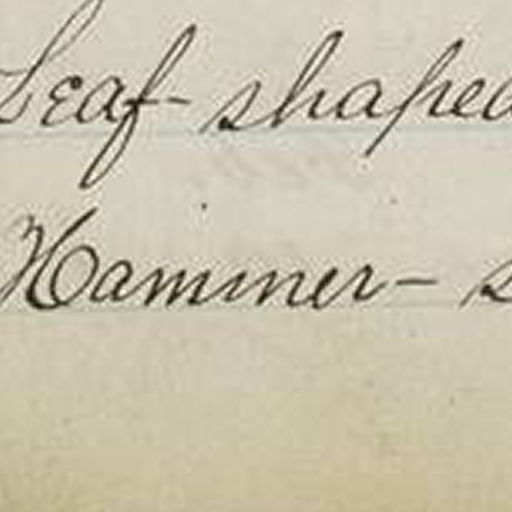 Leaf-shaped
Hammer-s